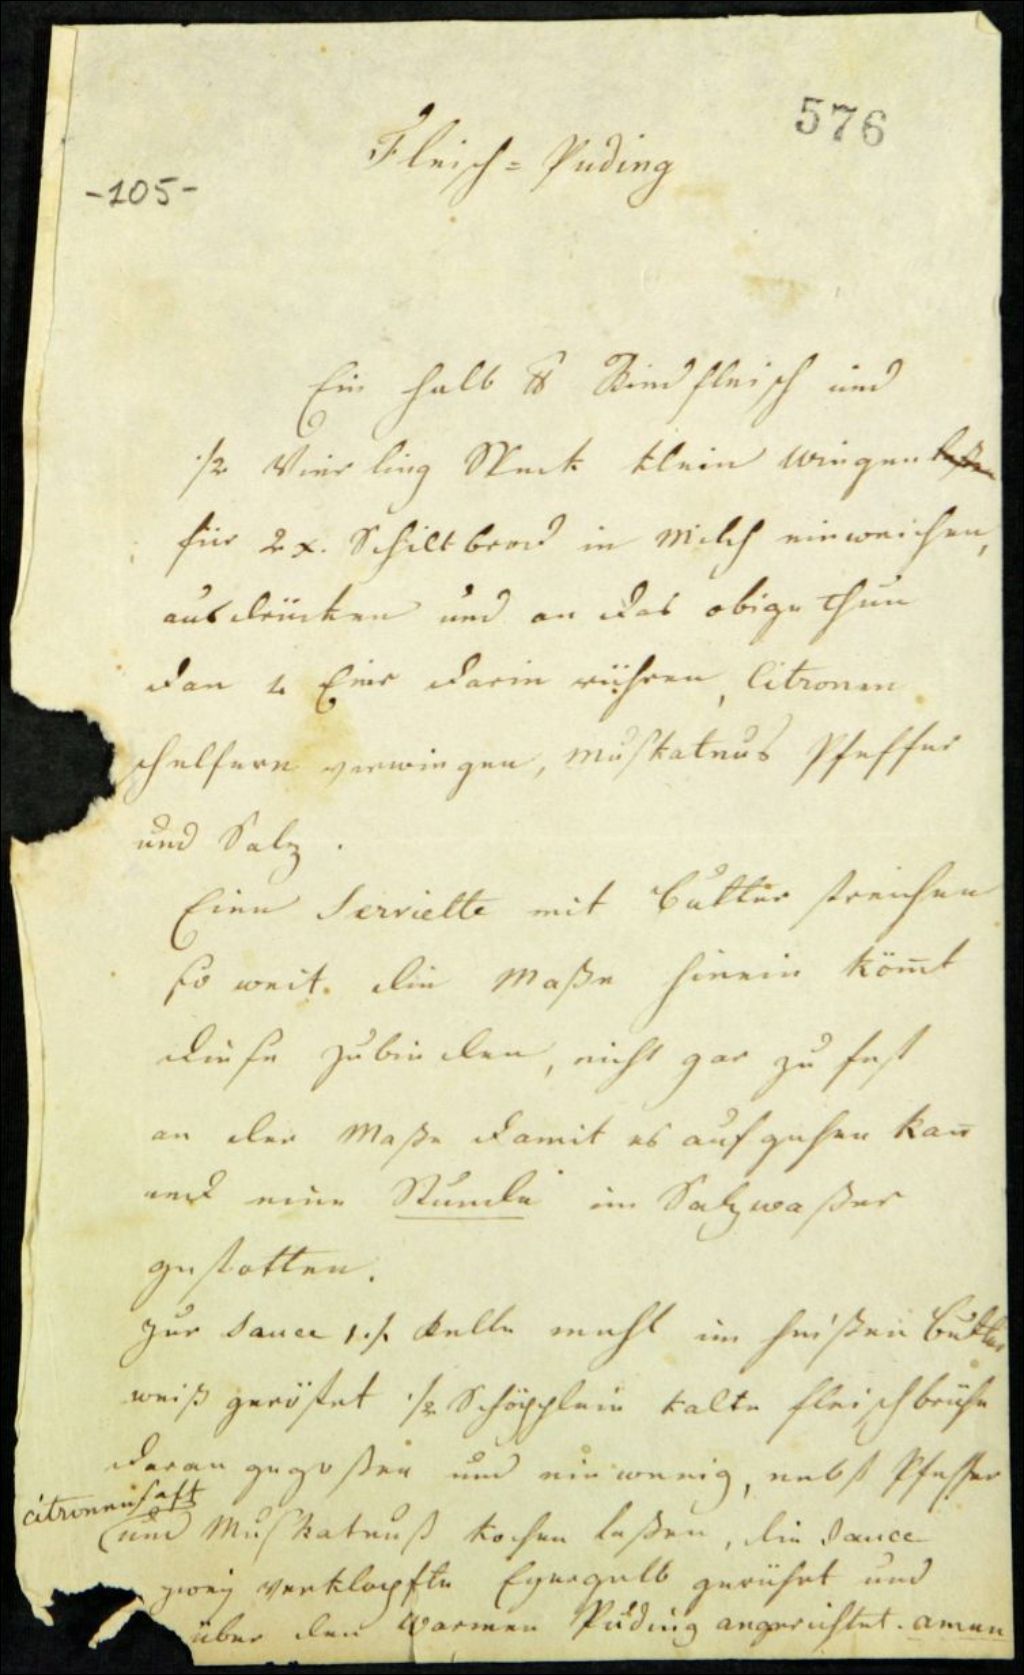 576
Fleisch=Puding
-105-
Ein halb ℔ Rindfleisch und
1/2 Vierling Speck klein wiegen
für 2 x. Schiltbrod in Milch einweichen,
ausdrücken und an das obige thun
dan 4 Eier darin rühren, Citronen
schelfern verwiegen, Muskatnus Pfeffer
und Salz.
Eine Serviette mit Butter streichen
so weit die Maße hinein köm̄t
diese zubinden, nicht gar zu fest
an der Maße damit es aufgehen kan̄
und eine Stunde im Salzwaßer
gesotten.
Zur Sauce 1 Kelle mehl im heißen Butter
weiß geröstet 1/2 Schöpplein kalte fleischbrühe
daran gegoßen und ein wenig, nebst Pfeffer
citronensaft
und Muskatnuß kochen laßen, die Sauce
zwey verklopfte Eyergelb gerührt und
über den warmen Puding angerichtet. amen